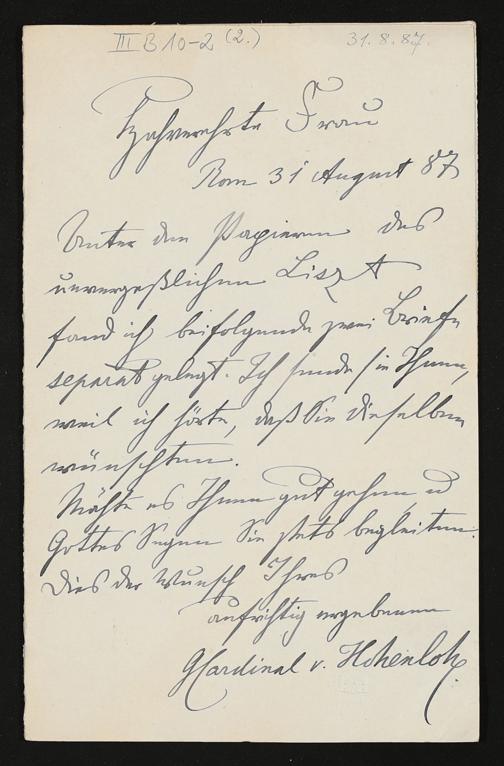 III B 10-2 (2.) 31.8.87.
Hochverehrte Frau
Rom 31 August 87
Unter den Papieren des
unvergeßlichen Liszt
fand ich beifolgende zwei Briefe
separat gelegt. Ich sende sie Ihnen,
weil ich hörte, daß Sie dieselben
wünschten.
Möchte es Ihnen gut gehen u
Gottes Segen Sie stets begleiten.
Dies der Wunsch Ihres
aufrichtig ergebenen
GCardinal v. Hohenlohe